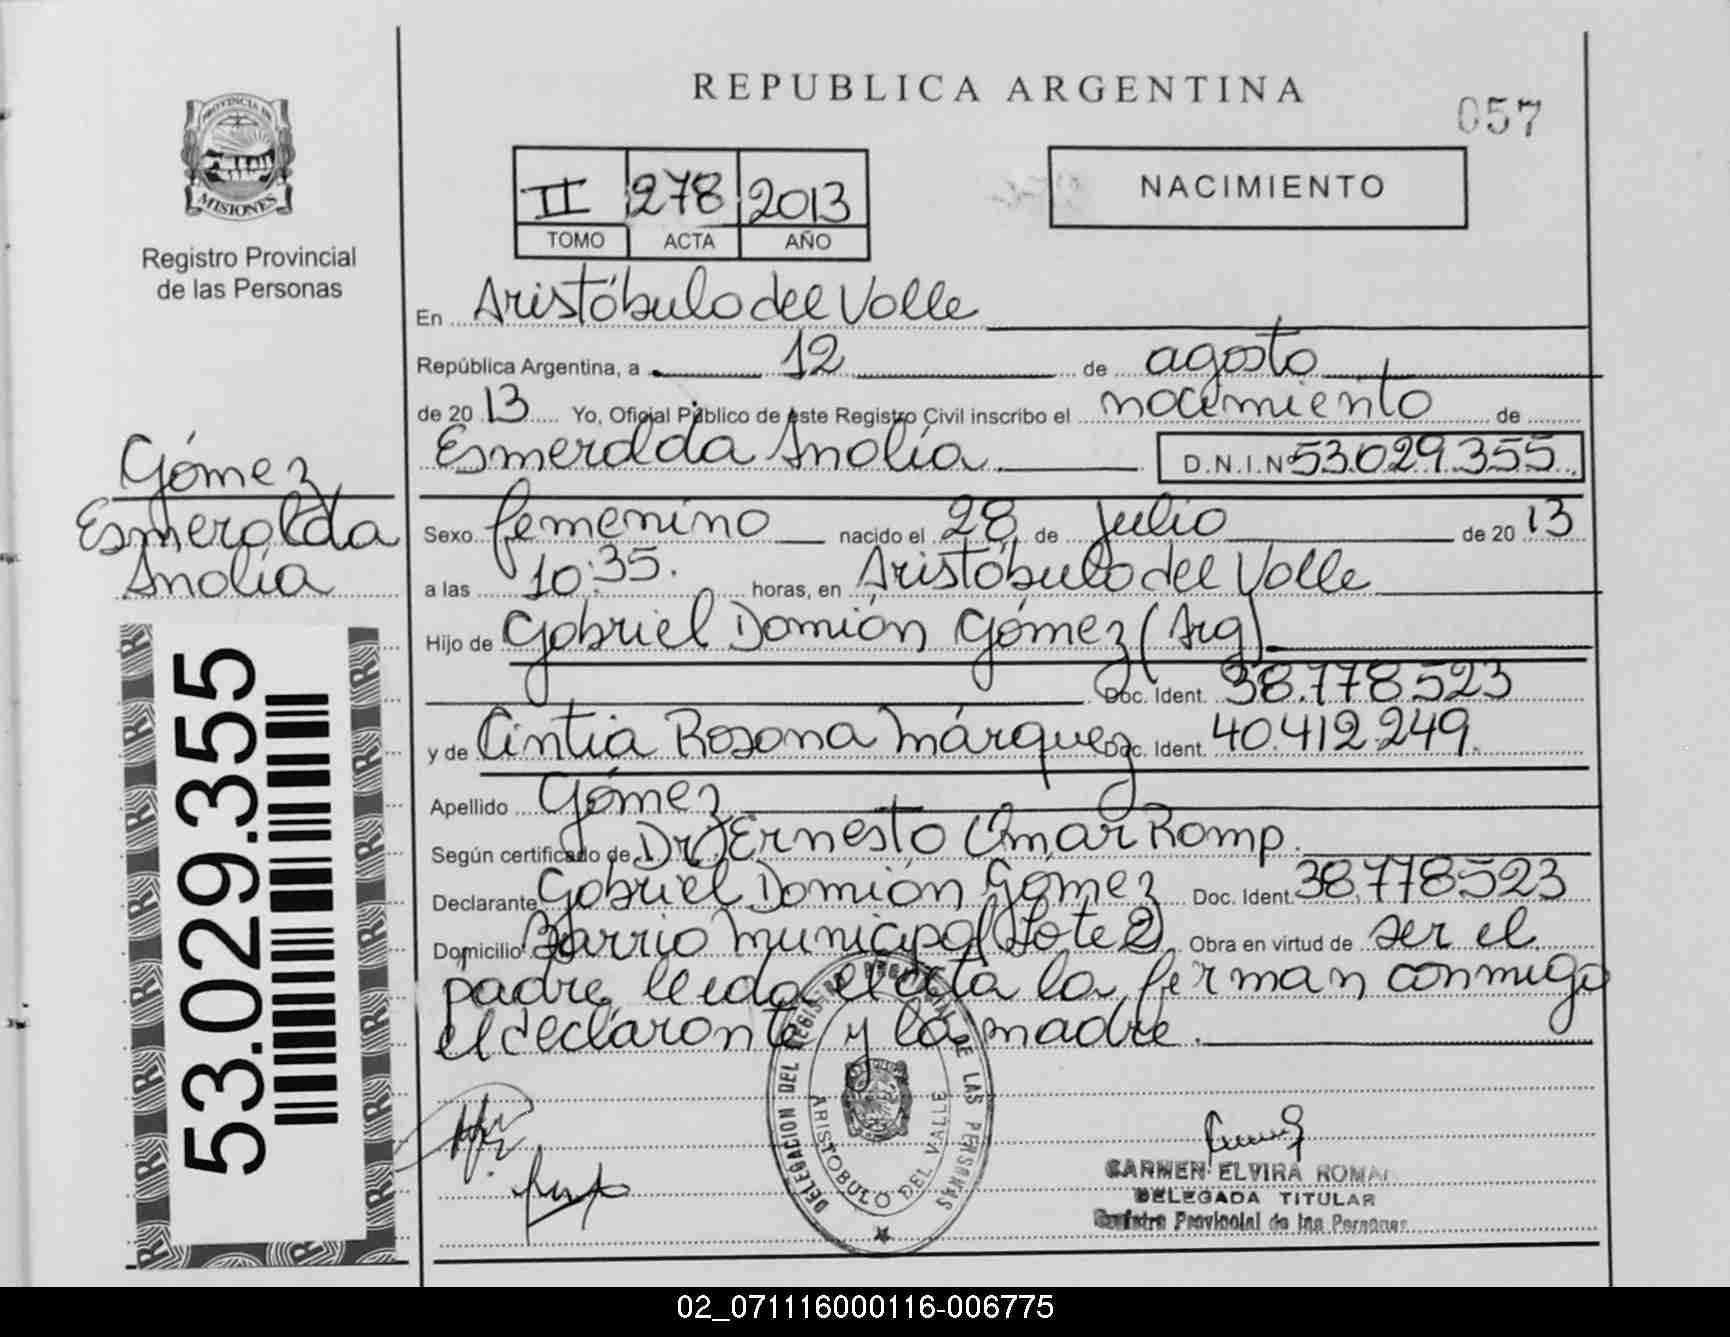 REPUBLICA ARGENTINA
057
PROVINCIA DE
MISIONES
Registro Provincial
de las Personas
II 278 2013
TOMO ACTA AÑO
NACIMIENTO
En Aristóbulo del Valle
República Argentina, a 12 de agosto
de 2013 Yo, Oficial Público de este Registro Civil inscribo el nacimiento de
Esmeralda Analía D.N.I.Nº 53.029.355
Gómez
Esmeralda
Analía
Sexo femenino nacido el 28 de julio de 2013
a las 10:35. horas, en Aristóbulo del Valle
Hijo de Gabriel Damián Gómez (Arg)
Doc. Ident. 38.778.523
y de Cintia Rosana Márquez Doc. Ident. 40.412.249.
Apellido Gómez
Según certificado de Dr. Ernesto Omar Romp.
Declarante Gabriel Damián Gómez Doc. Ident. 38.778.523
Domicilio Barrio Municipal (Lote 2) Obra en virtud de ser el
padre, leída el acta la firman conmigo
el declarante y la madre.
53.029.355
DELEGACION DEL REGISTRO PROVINCIAL DE LAS PERSONAS
ARISTOBULO DEL VALLE
CARMEN ELVIRA ROMAN
DELEGADA TITULAR
Registro Provincial de las Personas
02_071116000116-006775